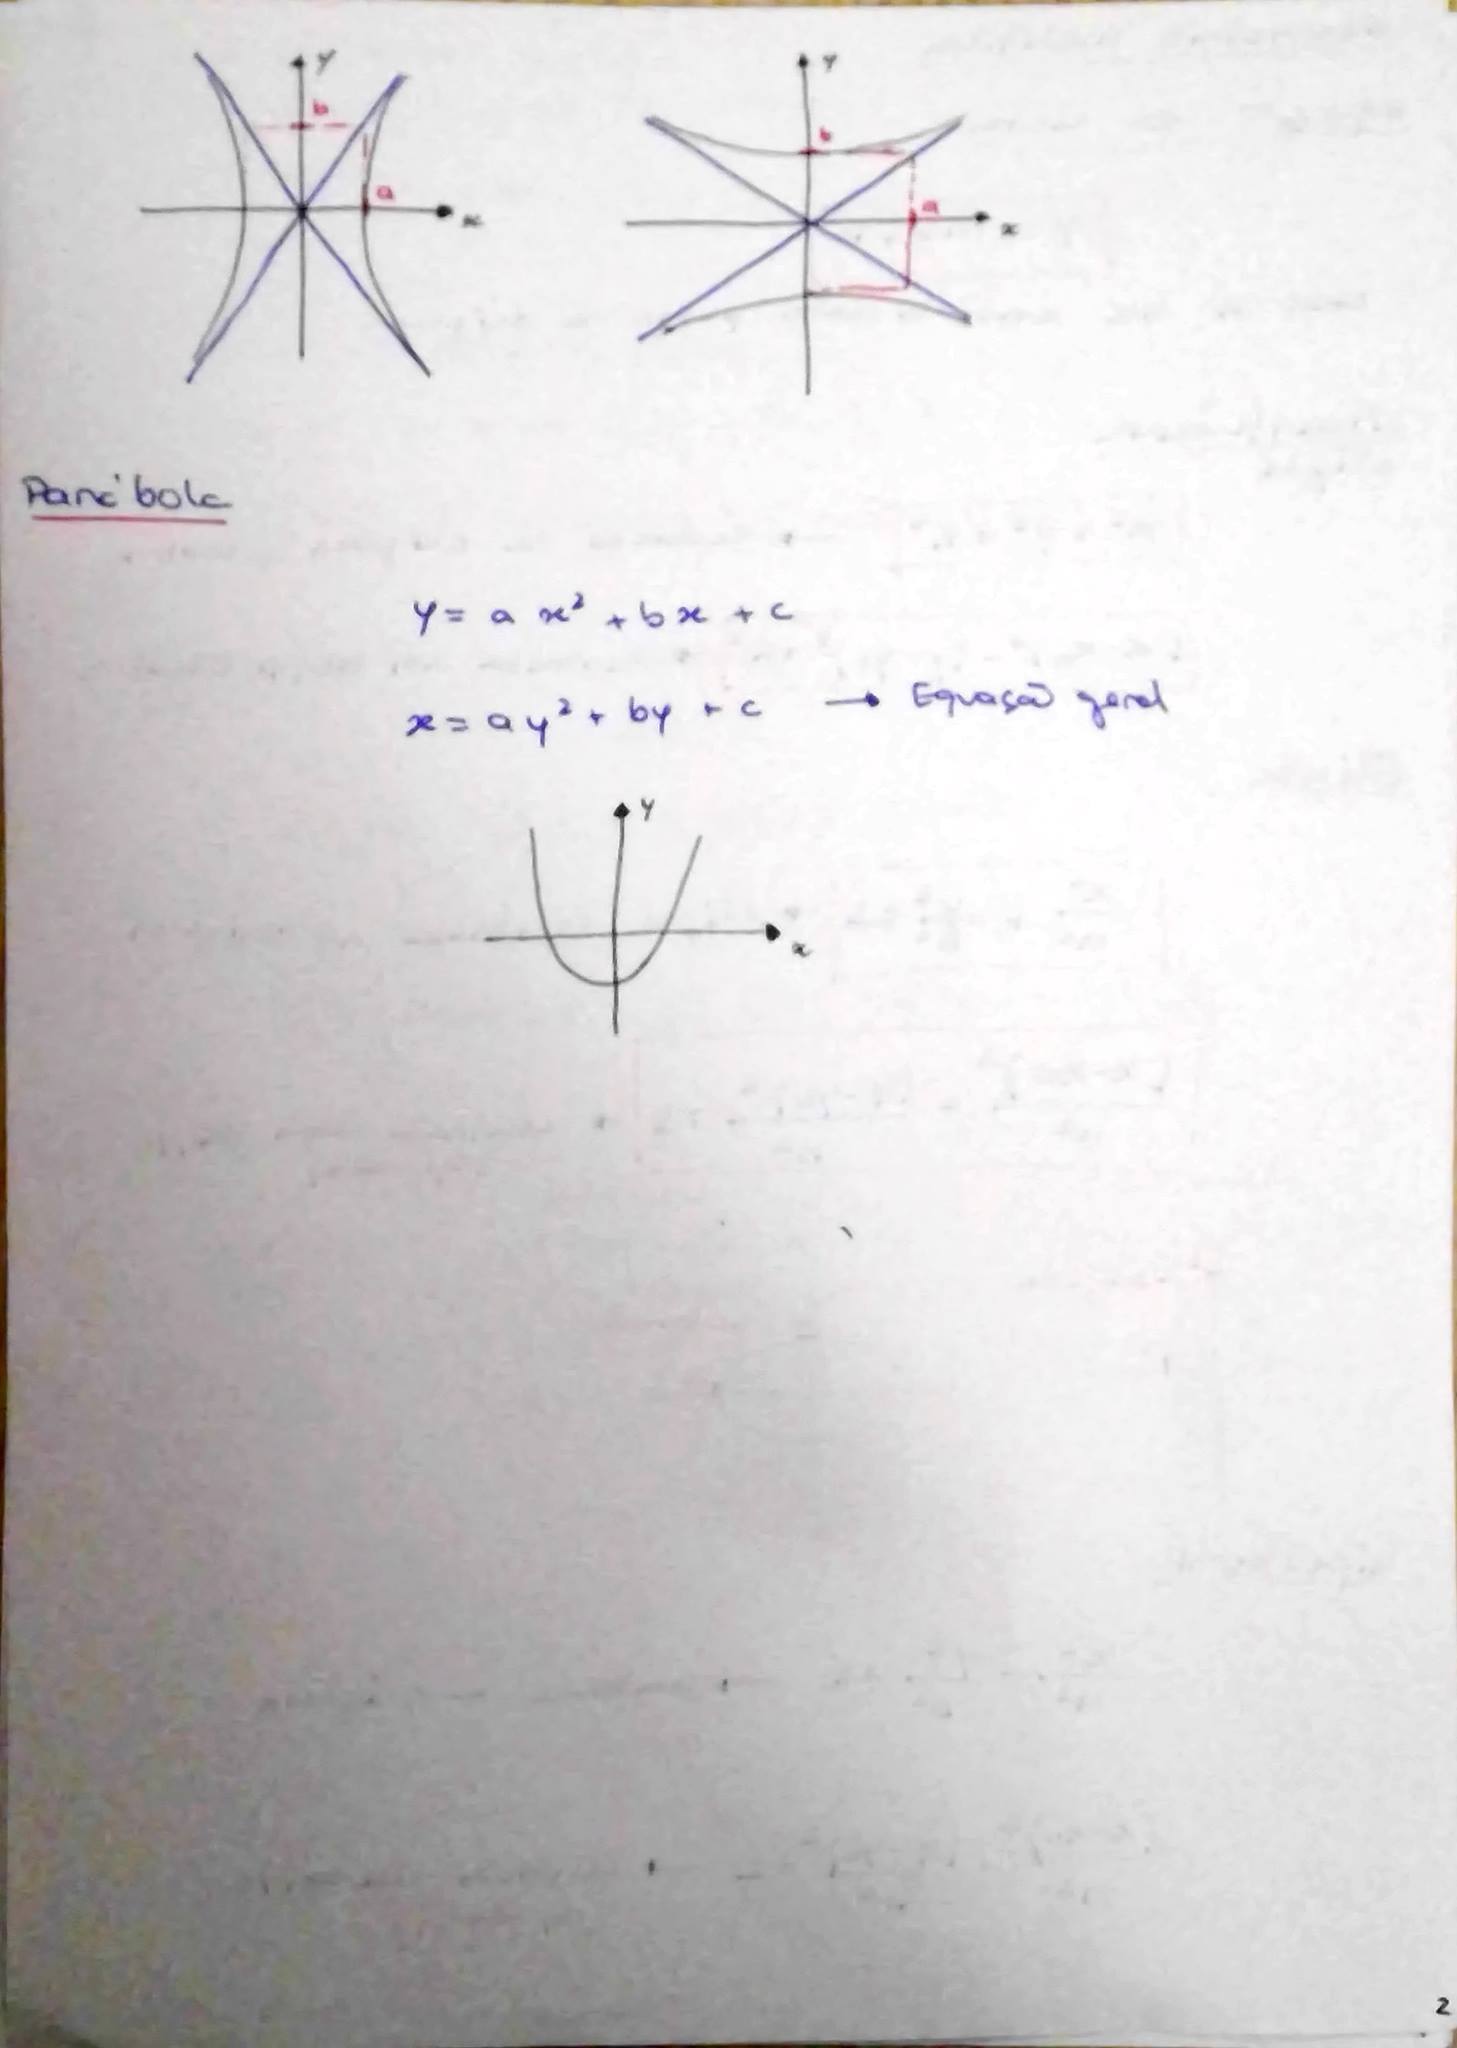 y
b
a
x
y
b
a
x
Parábola
y = a x² + bx + c
x = ay² + by + c → Equação geral
y
x
2